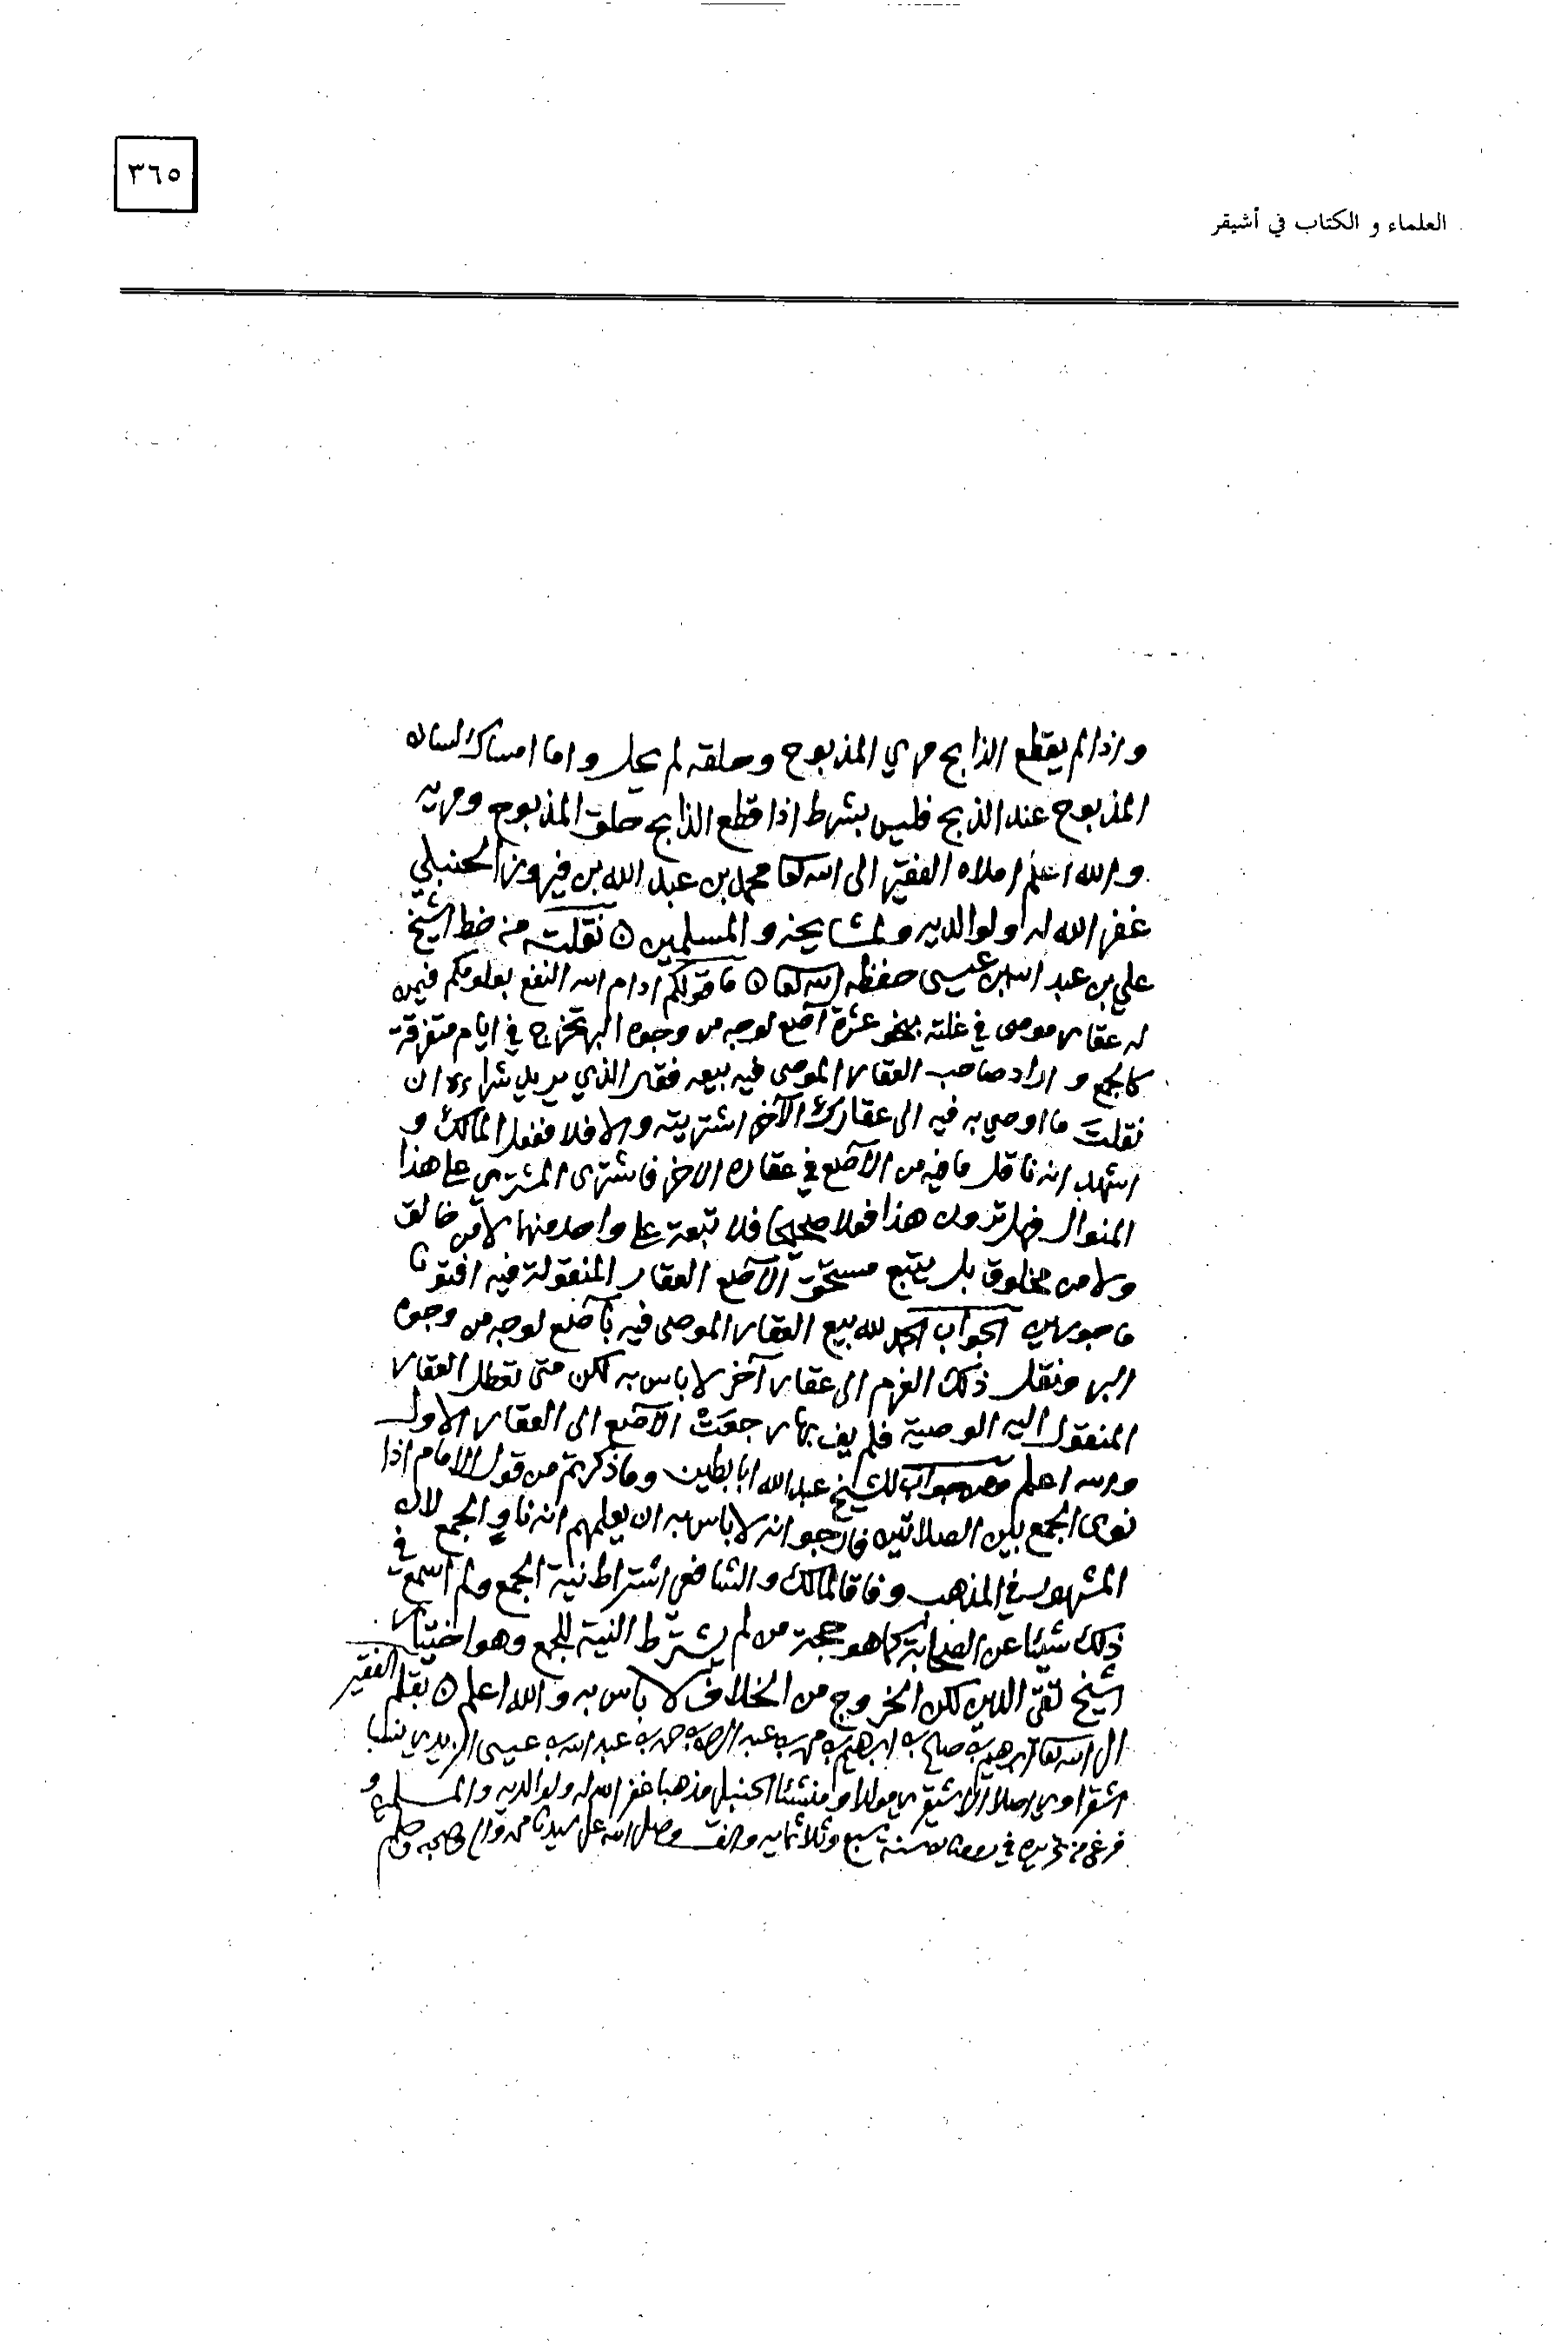 ٣٦٥
العلماء و الكتاب في أشيقر
واذا لم يقطع الذابح مري المذبوح وحلقه لم يحل واما امساك لسان
المذبوح عند الذبح فليس بشرط اذا قطع الذابح حلق المذبوح ومريه
والله اعلم املاه الفقير الى الله تعا محمد بن عبد الله بن فيروز الحنبلي
غفر الله له ولوالديه ولمشايخه والمسلمين ه نقلته من خط الشيخ
علي بن عبد الله بن عيسى حفظه الله تعا ه ما قولكم ادام الله النفع بعلومكم فيمن
له عقار موصى في غلته بنحو عشرة آصع لوجه من وجوه البر تخرج في ايام متفرقة
كالجمع و اراد صاحب العقار الموصى فيه بيعه فقال الذي يريد شراءه ان
نقلت ما اوصي به فيه الى عقارك الآخر اشتريته والا فلا ففعل المالك و
اشهد انه ناقل ما فيه من الآصع في عقاره الاخر فاشترى المشتري على هذا
المنوال فهل ترون هذا فعلا صحيحا فلا تبعة على واحد منهما لا من خالق
ولا من مخلوق بل يتبع مستحق الآصع العقار المنقولة فيه افتونا
ماجورين الجواب الحمد لله بيع العقار الموصى فيه بآصع لوجه من وجوه
البر ونقل ذلك الى عقار آخر لا باس به لكن متى تعطل العقار
المنقول اليه الوصية فلم يف بها رجعت الآصع الى العقار الاول
والله اعلم ومن جواب للشيخ عبد الله ابابطين وما ذكرتم من قول الامام اذا
نوى الجمع بين الصلاتين فارجو انه لا باس به ان يعلمهم انه ناوي الجمع لان
المشهور في المذهب وفاقا لمالك والشافعي اشتراط نية الجمع ولم اسمع في
ذلك شيئا عن الصحابة كما هو حجة من لم يشترط النية للجمع وهو اختيار
الشيخ تقي الدين لكن الخروج من الخلاف لا باس به والله اعلم ه بقلم الفقير
الى الله تعا ابرهيم بن صالح بن ابرهيم بن محمد بن عبد الرحمن بن حمد بن عبد الله بن عيسى الزيدي نسبا
الشقراوي اصلا الاشيقري مولدا ومنشئا الحنبلي مذهبا غفر الله له ولوالديه والمسلمين و
فرغ من تحريره في رمضان سنة سبع وثلاثمايه والف وصلى الله على سيدنا محمد واله وصحبه وسلم